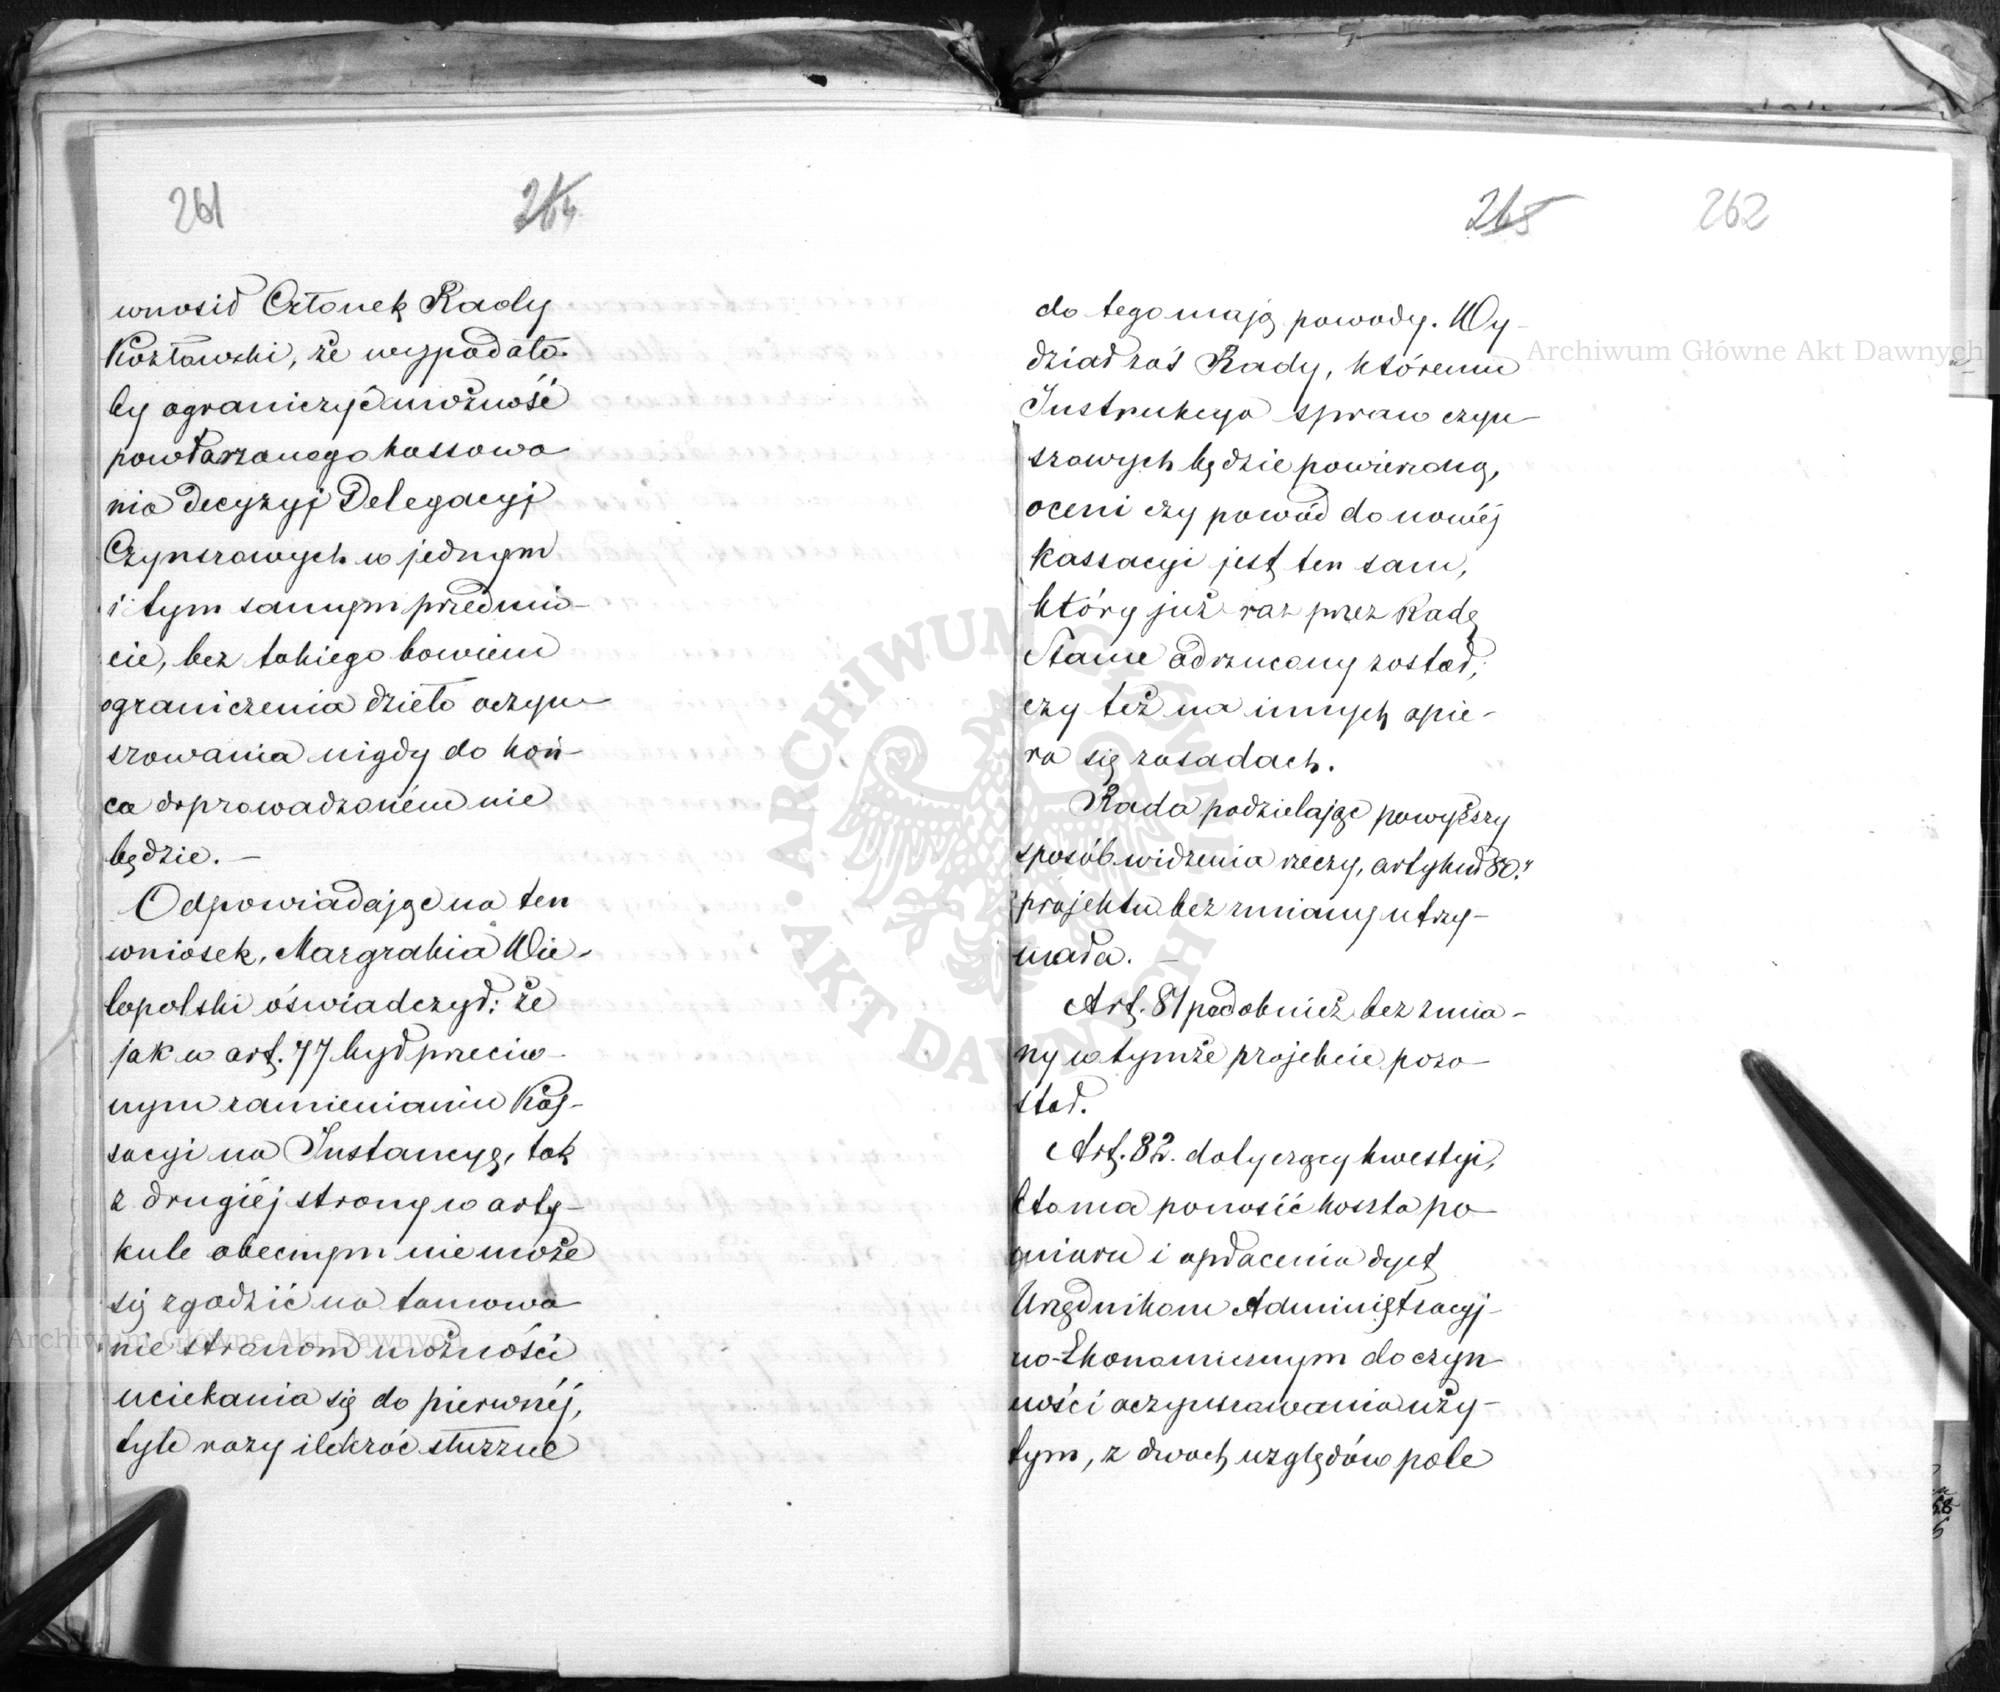 261 264
wnosił Członek Rady
Kozłowski, że wypadało
by ograniczyć możność
powtarzanego kassowa
nia decyzyj Delegacyj
Czynszowych w jednym
i tym samym przedmio-
cie, bez takiego bowiem
ograniczenia dzieło oczyn
szowania nigdy do koń-
ca doprowadzoném nie
będzie. —
Odpowiadając na ten
wniosek, Margrabia Wie-
lopolski oświadczył: że
jak w art. 77 był przeciw-
nym zamienianiu Kas-
sacyi na Instancyę, tak
z drugiéj strony w arty-
kule obecnym nie może
się zgodzić na tamowa
nie stronom możności
uciekania się do pierwszéj,
tyle razy ilekroć słuszne
265 262
do tego mają powody. Wy-
dział zaś Rady, któremu
Instrukcya spraw czyn
szowych będzie powierzoną,
oceni czy powód do nowéj
kassacyi jest ten sam,
który już raz przez Radę
Stanu odrzucony został,
czy też na innych opie-
ra się zasadach.
Rada podzielając powyższy
sposób widzenia rzeczy, artykuł 80.
projektu bez zmiany utrzy-
mała. —
Art. 81 podobnież bez zmia-
ny w tymże projekcie pozo-
stał.
Art. 82. dotyczący kwestyi,
kto ma ponosić koszta po
miaru i opłacenia dyet
Urzędnikom Administracyj-
no-Ekonomicznym do czyn
ności oczynszowania uży-
tym, z dwóch względów pole
Archiwum Główne Akt Dawnych
Archiwum Główne Akt Dawnych
ARCHIWUM GŁÓWNE • AKT DAWNYCH •